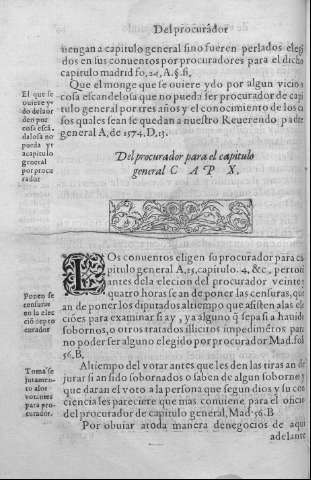 Del procurador
uengan a capitulo general sino fueren perlados elegi
dos en sus conuentos por procuradores para el dicho
capitulo madrid fo, 24, A. §. fi,
Que el monge que se ouiere ydo por algun vicio o
cosa escandelosa que no pueda ser procurador de capi
tulo general por tres años y el conocimiento de los ca
sos quales sean se quedan a nuestro Reuerendo padre
general A, de 1574. D, 13.
El que se
ouiere y-
do de la or
den por
cosa escã-
dalosa no
pueda yr
a capitulo
general
por procu
rador
Del procurador para el capitulo
general C A P X.
LOs conuentos eligen su procurador para ca-
pitulo general A, 15, capitulo. 4, &c, pero un
antes de la elecion del procurador veinte y
quatro horas se an de poner las censuras, que
an de poner los diputados al tiempo que asisten a las ele
ciões para examinar si ay, ya alguno q̃ sepa si a hauido
sobornos, o otros tratados illicitos impedimẽtos para
no poder ser alguno elegido por procurador Mad. fol
56, B,
Ponen se
censuras
en la elec
ciõ de pro
curador
Al tiempo del votar antes que les den las tiras an de
jurar si an sido sobornados o saben de algun soborno y
que daran el voto a la persona que segun dios y su con
ciencia les pareciere que mas conuiene para el oficio
del procurador de capitulo general, Mad. 56. B
Toma se
juramen-
to a los
votantes
para pro-
curador.
Por obuiar a toda manera de negocios de aqui
adelante